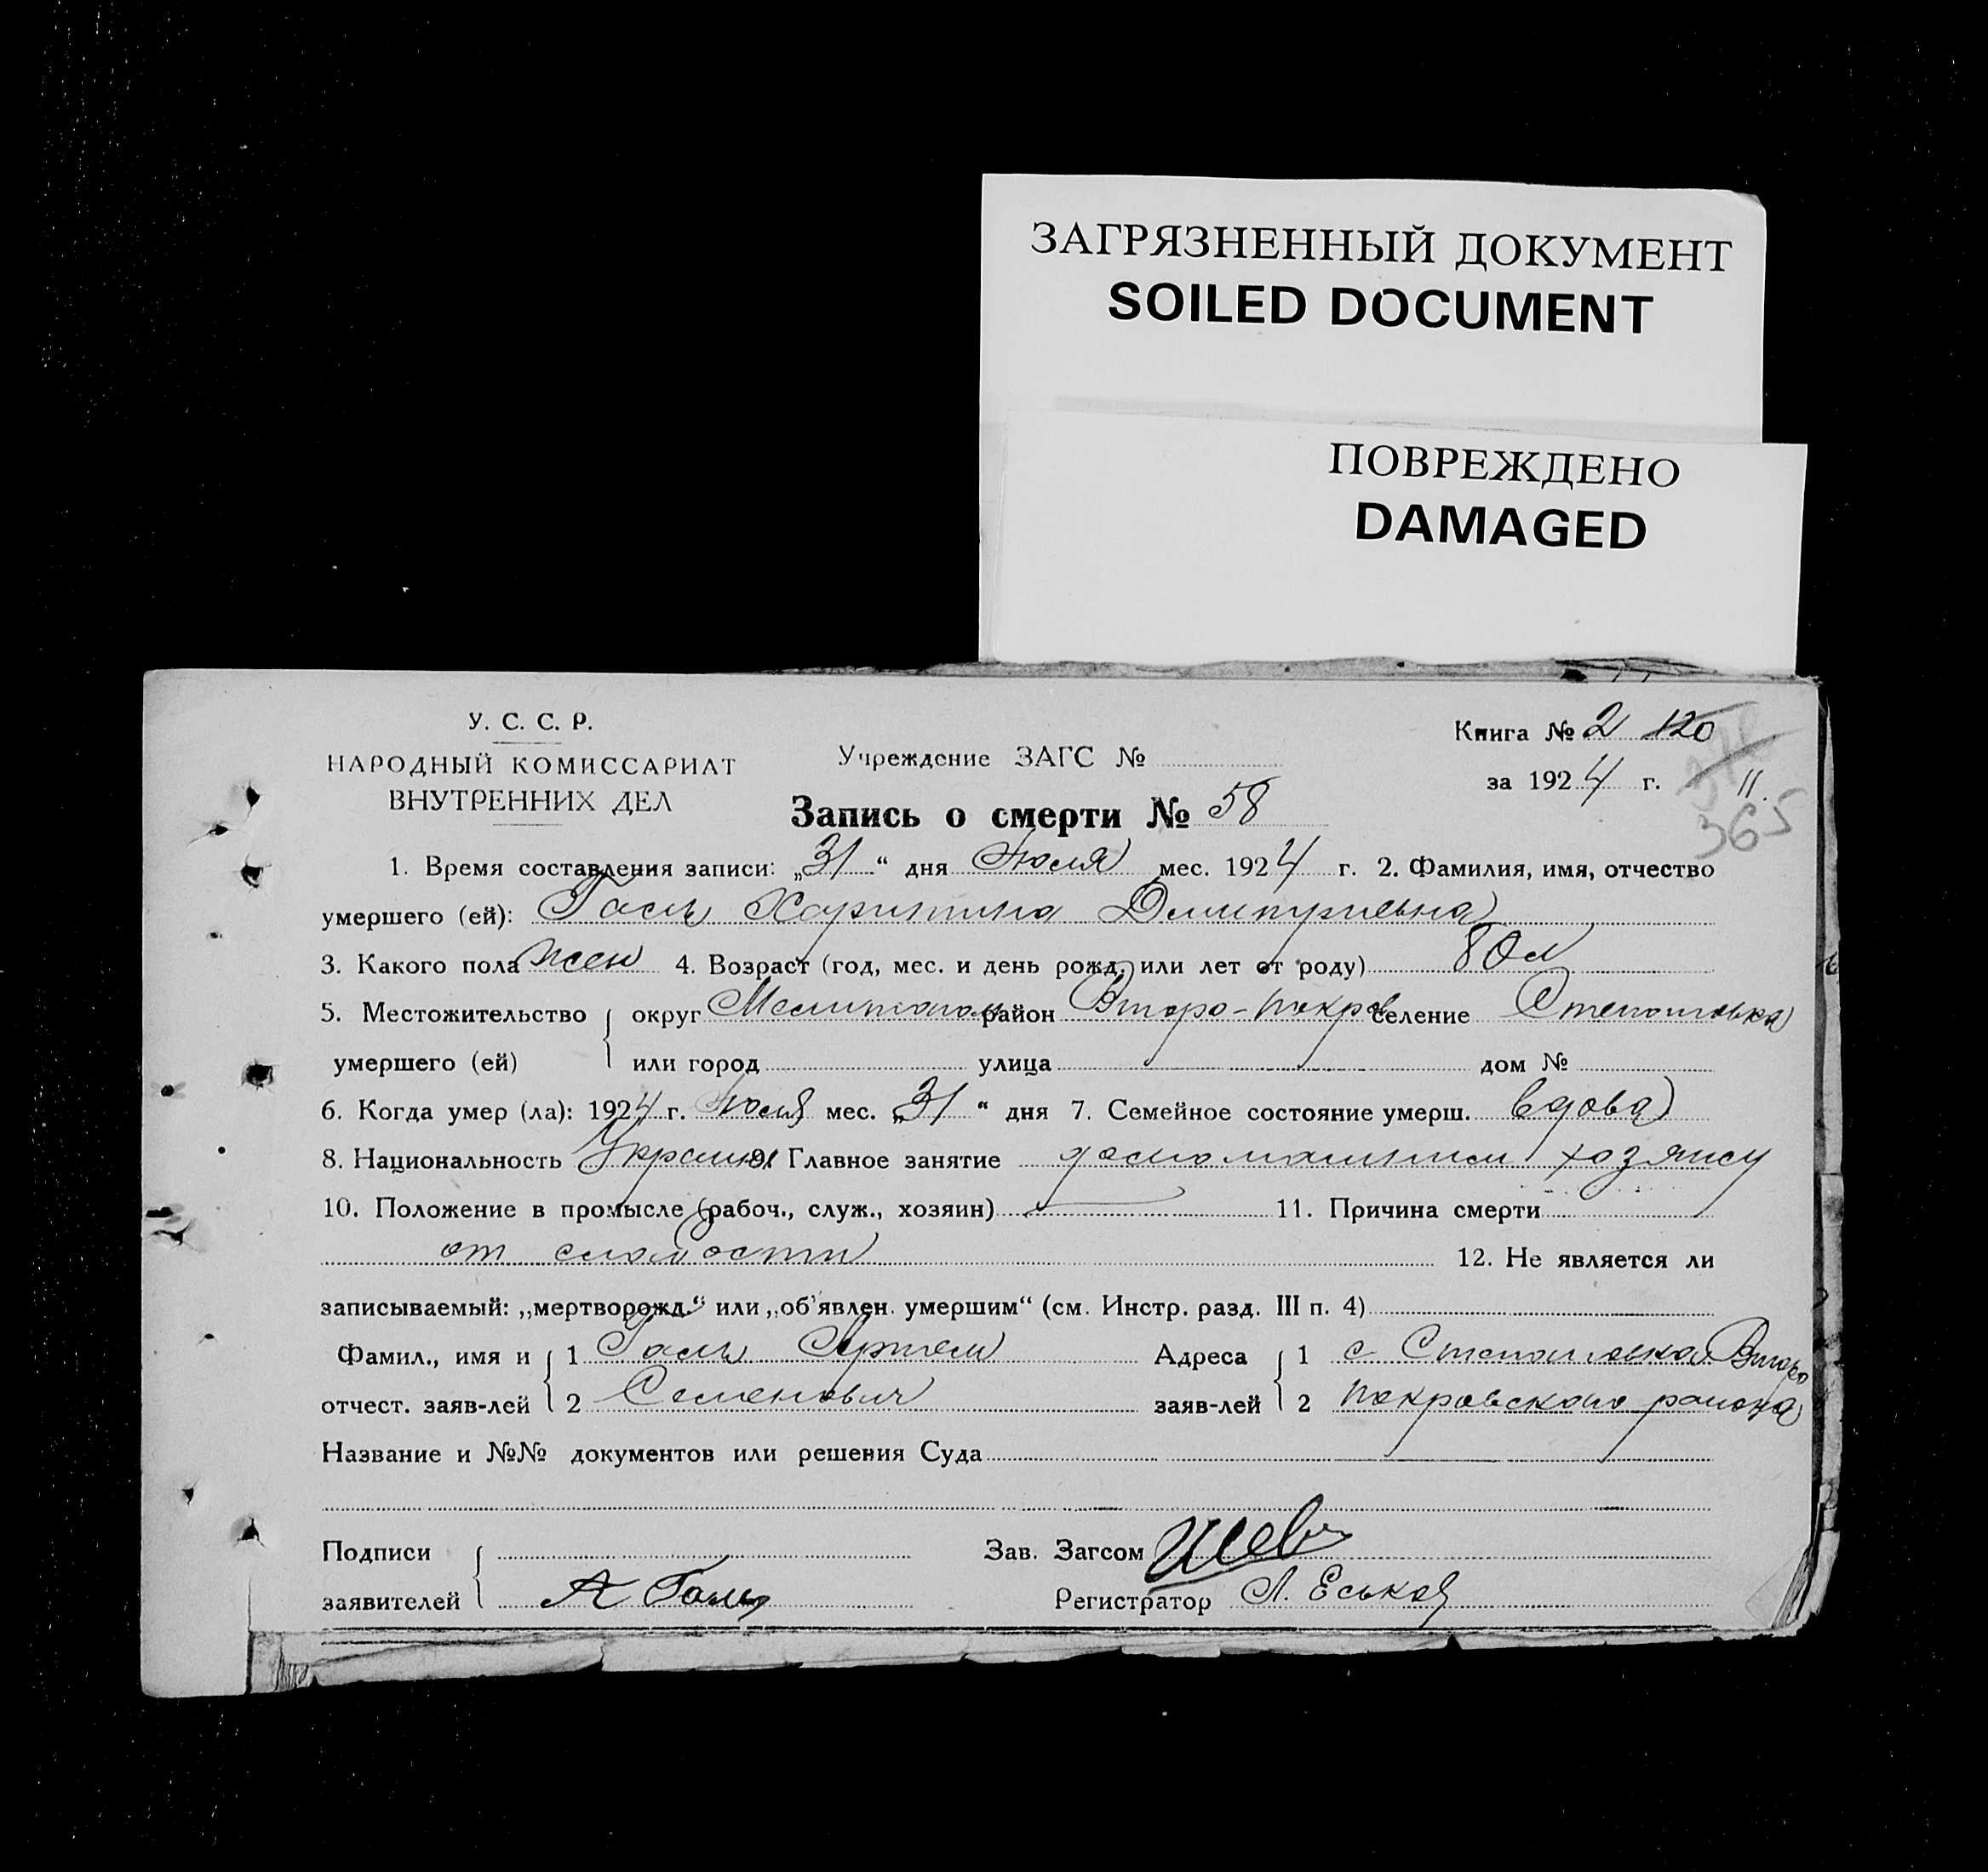 ЗАГРЯЗНЕННЫЙ ДОКУМЕНТ
SOILED DOCUMENT
ПОВРЕЖДЕНО
DAMAGED
У. С. С. Р.
НАРОДНЫЙ КОМИССАРИАТ
ВНУТРЕННИХ ДЕЛ
Учреждение ЗАГС №
Книга № 2 120
за 1924 г. 11.
365
Запись о смерти № 58
1. Время составления записи: „31“ дня Июля мес. 1924 г. 2. Фамилия, имя, отчество
умершего (ей): Галь Харитина Дмитриевна
3. Какого пола жен 4. Возраст (год, мес. и день рожд. или лет от роду) 80 л
5. Местожительство округ Мелитополь район Второ-покров селение Степановка
умершего (ей) или город улица дом №
6. Когда умер (ла): 1924 г. Июля мес. „31“ дня 7. Семейное состояние умерш. вдова
8. Национальность Украин 9. Главное занятие хозяйку
10. Положение в промысле (рабоч., служ., хозяин) 11. Причина смерти
от слабости 12. Не является ли
записываемый: „мертворожд.“ или „об'явлен. умершим“ (см. Инстр. разд. III п. 4)
Фамил., имя и 1 Галь Артем Адреса 1 с Степановка Второ
отчест. заяв-лей 2 Семенович заяв-лей 2 покровского района
Название и №№ документов или решения Суда
Подписи Зав. Загсом Шев
заявителей А Галь Регистратор Л. Еськов